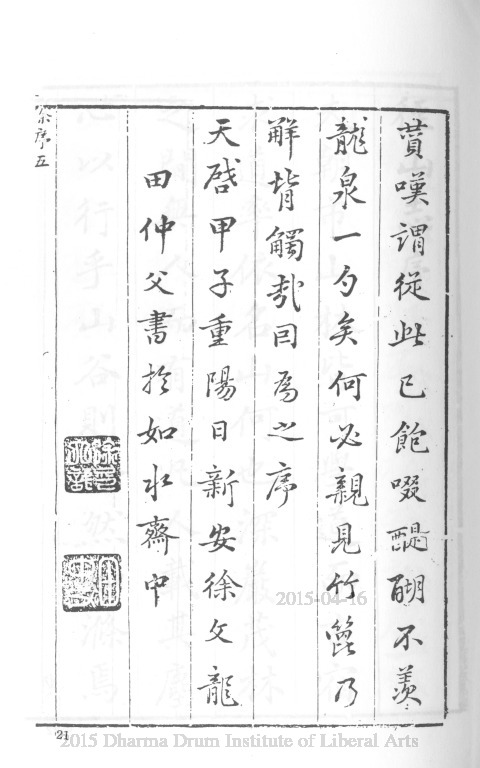 賁嘆謂從此已飽啜醍醐不羨
龍泉一勺矣何必親見竹篦乃
解背觸哉因爲之序
天啓甲子重陽日新安徐文龍
田仲父書於如水齋中
序五
21
2015-04-16
2015 Dharma Drum Institute of Liberal Arts